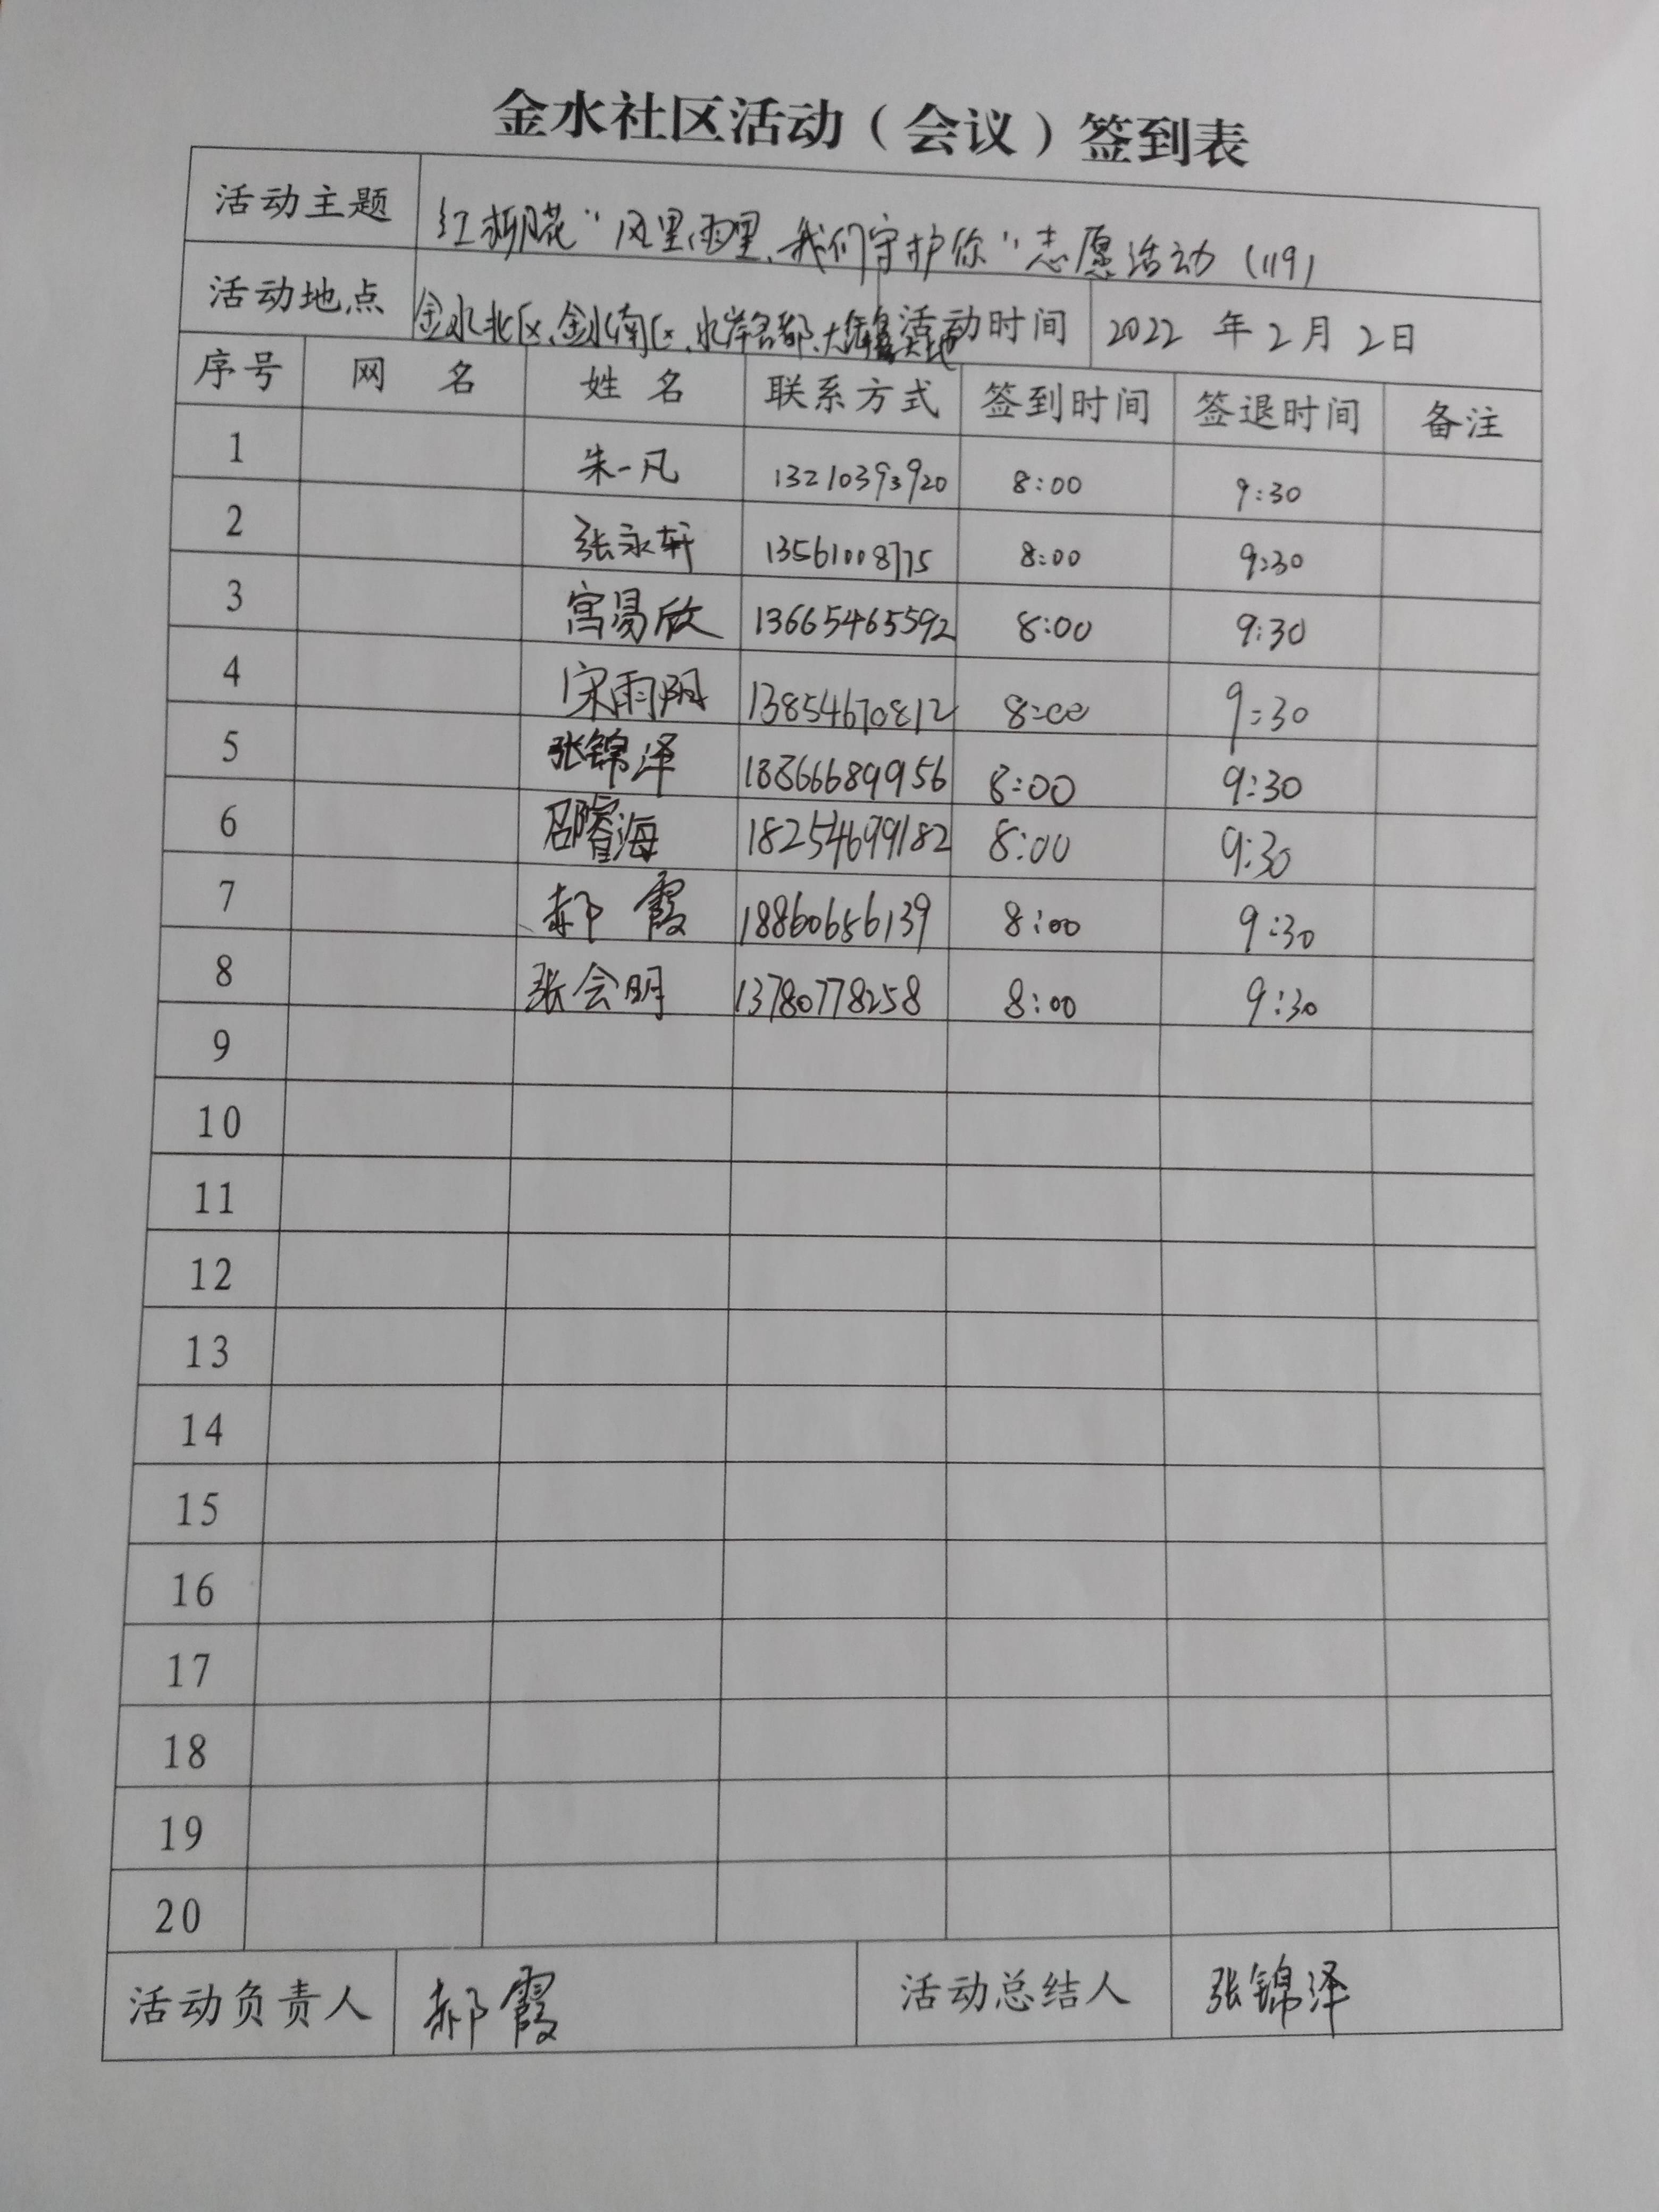 金水社区活动（会议）签到表
活动主题 红柳花“风里雨里、我们守护你”志愿活动（119）
活动地点 金水北区、金水南区、水岸名都、大 活动时间 2022 年 2 月 2 日
序号 网 名 姓 名 联系方式 签到时间 签退时间 备注
1 朱一凡 13210393920 8:00 9:30
2 张永轩 13561008775 8:00 9:30
3 易欣 13665465592 8:00 9:30
4 宋雨阳 13854670812 8:00 9:30
5 张锦泽 18866689956 8:00 9:30
6 邵睿海 18254699182 8:00 9:30
7 郝 霞 18860656139 8:00 9:30
8 张会明 13780778258 8:00 9:30
9
10
11
12
13
14
15
16
17
18
19
20
活动负责人 郝霞 活动总结人 张锦泽